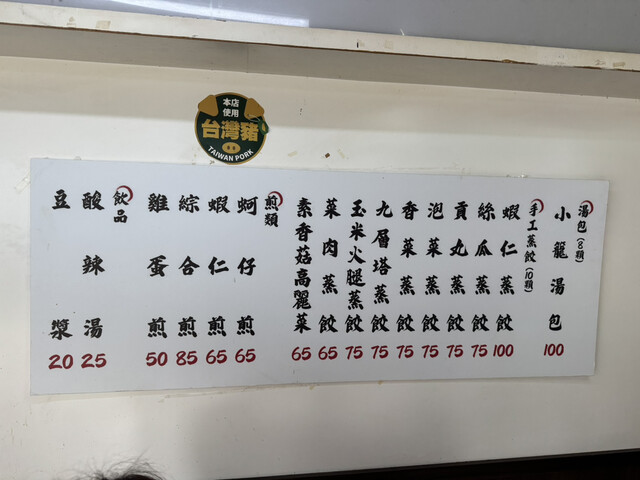 本店
使用
台灣豬
TAIWAN PORK
湯包(8顆)
小籠湯包
100
手工蒸餃(10顆)
蝦仁蒸餃
100
絲瓜蒸餃
75
貢丸蒸餃
75
泡菜蒸餃
75
香菜蒸餃
75
九層塔蒸餃
75
玉米火腿蒸餃
75
菜肉蒸餃
65
素香菇高麗菜
65
煎類
蚵仔煎
65
蝦仁煎
65
綜合煎
85
雞蛋煎
50
飲品
酸辣湯
25
豆漿
20